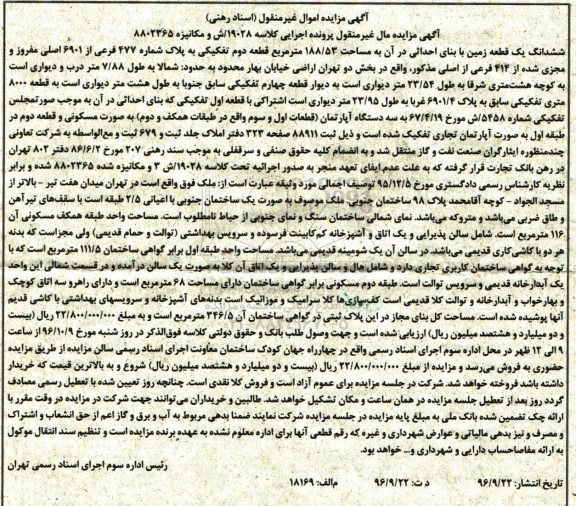 آگهی مزایده اموال غیرمنقول (اسناد رهنی)
آگهی مزایده مال غیرمنقول پرونده اجرایی کلاسه ۱۹۰۲۸/ش و مکانیزه ۸۸۰۲۳۶۵
ششدانگ یک قطعه زمین با بنای احداثی در آن به مساحت ۱۸۸/۵۳ مترمربع قطعه دوم تفکیکی به پلاک شماره ۴۷۷ فرعی از ۶۹۰۱ اصلی مفروز و
مجزی شده از ۴۱۴ فرعی از اصلی مذکور، واقع در بخش دو تهران اراضی خیابان بهار محدود به حدود: شمالا به طول ۷/۸۸ متر درب و دیواری است
به کوچه هشت‌متری شرقا به طول ۲۳/۵۴ متر دیواری است به دیوار قطعه چهارم تفکیکی سابق جنوبا به طول هشت متر دیواری است به قطعه ۸۰۰۰
متری تفکیکی سابق به پلاک ۶۹۰۱/۴ غربا به طول ۲۳/۹۵ متر دیواری است اشتراکی با قطعه اول تفکیکی که بنای احداثی در آن به موجب صورتمجلس
تفکیکی شماره ۵۴۵۸/ش مورخ ۶۷/۴/۱۹ به سه دستگاه آپارتمان (قطعات اول و سوم واقع در طبقات همکف و دوم) به صورت مسکونی و قطعه دوم در
طبقه اول به صورت آپارتمان تجاری تفکیک شده است و ذیل ثبت ۸۸۹۱۱ صفحه ۳۲۳ دفتر املاک جلد ثبت و ۶۷۹ ثبت و مع‌الواسطه به شرکت تعاونی
چندمنظوره ایثارگران صنعت نفت و گاز منتقل شد و به انضمام کلیه حقوق صنفی و سرقفلی به موجب سند رهنی ۲۰۷ مورخ ۸۶/۶/۲ دفتر ۸۰۲ تهران
در رهن بانک تجارت قرار گرفته که به علت عدم ایفای تعهد منجر به صدور اجرائیه تحت کلاسه ۱۹۰۲۸/ش ۳ و مکانیزه شده ۸۸۰۲۳۶۵ شده و برابر
نظریه کارشناس رسمی دادگستری مورخ ۹۵/۱۲/۵ توصیف اجمالی مورد وثیقه عبارت است از: ملک فوق واقع است در تهران میدان هفت تیر - بالاتر از
مسجد الجواد - کوچه آقامحمد پلاک ۹۸ ساختمان جنوبی. ملک موصوف به صورت یک ساختمان جنوبی با اعیانی ۲/۵ طبقه است با سقف‌های تیرآهن
و طاق ضربی می‌باشد و متروکه می‌باشد. نمای شمالی ساختمان سنگ و نمای جنوبی از حیاط نامطلوب است. مساحت واحد طبقه همکف مسکونی آن
۱۱۶ مترمربع است. شامل سالن پذیرایی و یک اتاق و آشپزخانه کم‌کابینت فرسوده و سرویس بهداشتی (توالت و حمام قدیمی) ولی مجزاست که بدنه
هر دو با کاشی‌کاری قدیمی می‌باشد. در سالن آن یک شومینه قدیمی می‌باشد. مساحت واحد طبقه اول برابر گواهی ساختمان ۱۱۱/۵ مترمربع است که با
توجه به گواهی ساختمان کاربری تجاری دارد و شامل هال و سالن پذیرایی و یک اتاق آن کلا به صورت یک سالن درآمده و در قسمت شمالی این واحد
یک آبدارخانه قدیمی و سرویس توالت است. طبقه دوم مسکونی برابر گواهی ساختمان دارای مساحت ۶۸ مترمربع است و دارای راهرو سه اتاق کوچک
و بهارخواب و آبدارخانه و توالت کلا قدیمی است کف‌سازی‌ها کلا سرامیک و موزائیک است بدنه‌های آشپزخانه و سرویسهای بهداشتی با کاشی قدیم
آنها پوشیده شده است. مساحت کل بنای مجاز در این پلاک ثبتی در گواهی ساختمان آن ۳۴۶/۵ مترمربع است و به مبلغ ۲۲/۸۰۰/۰۰۰/۰۰۰ ریال (بیست
و دو میلیارد و هشتصد میلیون ریال) ارزیابی شده است و جهت وصول طلب بانک و حقوق دولتی کلاسه فوق‌الذکر در روز شنبه مورخ ۹۶/۱۰/۹ از ساعت
۹ الی ۱۲ ظهر در محل اداره سوم اجرای اسناد رسمی واقع در چهارراه جهان کودک ساختمان معاونت اجرای اسناد رسمی سالن مزایده از طریق مزایده
حضوری به فروش می‌رسد و مزایده از مبلغ ۲۲/۸۰۰/۰۰۰/۰۰۰ ریال (بیست و دو میلیارد و هشتصد میلیون ریال) شروع و به بالاترین قیمت که خریدار
داشته باشد فروخته خواهد شد. شرکت در جلسه مزایده برای عموم آزاد است و فروش کلا نقدی است. چنانچه روز تعیین شده با تعطیل رسمی مصادف
گردد روز بعد از تعطیل جلسه مزایده در همان ساعت و مکان تشکیل خواهد شد. طالبین و خریداران می‌توانند جهت شرکت در مزایده در وقت مقرر با
ارائه چک تضمین شده بانک ملی به مبلغ پایه مزایده در جلسه مزایده شرکت نمایند ضمنا بدهی مربوط به آب و برق و گاز اعم از حق انشعاب و اشتراک
و مصرف و نیز بدهی مالیاتی و عوارض شهرداری و غیره که رقم قطعی آنها برای اداره معلوم نشده به عهده برنده مزایده است و تنظیم سند انتقال موکول
به ارائه مفاصاحساب دارایی و شهرداری و... خواهد بود.
رئیس اداره سوم اجرای اسناد رسمی تهران
تاریخ انتشار: ۹۶/۹/۲۲ د ت: ۹۶/۹/۲۲ م‌الف: ۱۸۱۶۹